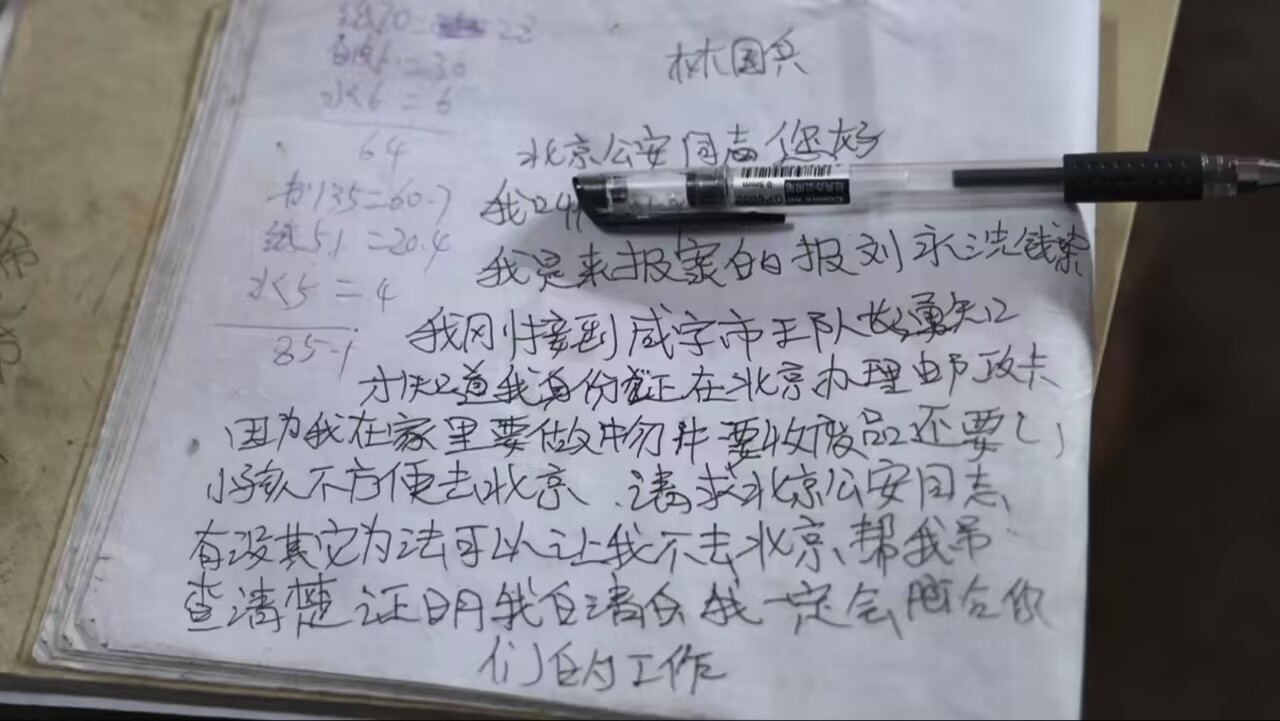 纸70=22
=30
水6=6
64
书135=60.7
纸51=20.4
水5=4
85.1
林国兵
北京公安同志您好
我24
0.5mm
GP6600
我是来报案的报刘永洗钱案
我刚接到咸宁市王队长通知
才知道我身份证在北京办理邮政卡
因为我在家里要做物件要收废品还要
小孩不方便去北京 请求北京公安同志
有没其它办法可以让我不去北京、帮我
查清楚证明我白清白我一定会配合你
们的工作